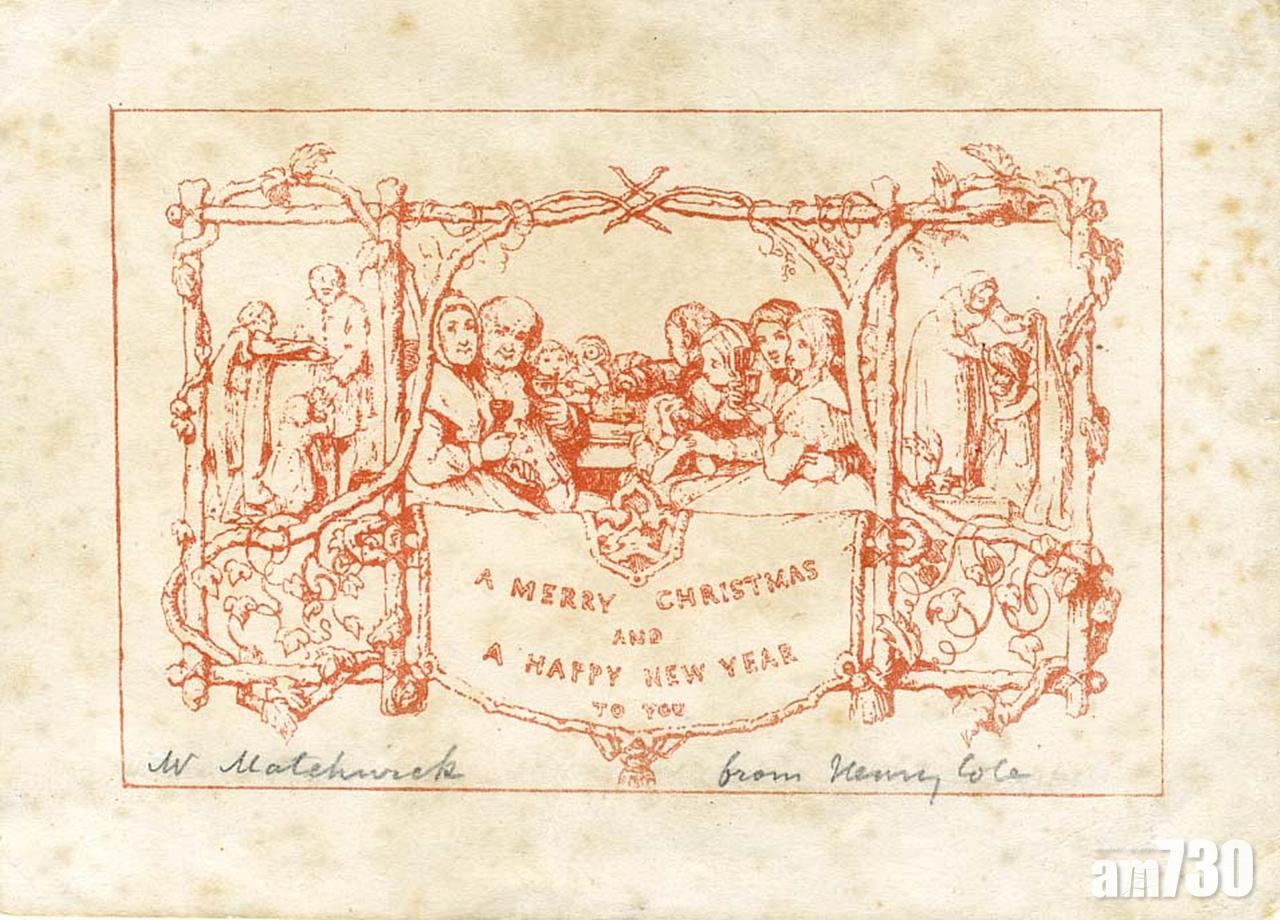 A MERRY CHRISTMAS
AND
A HAPPY NEW YEAR
TO YOU
Mr Matchwick
from Henry Cole
am730